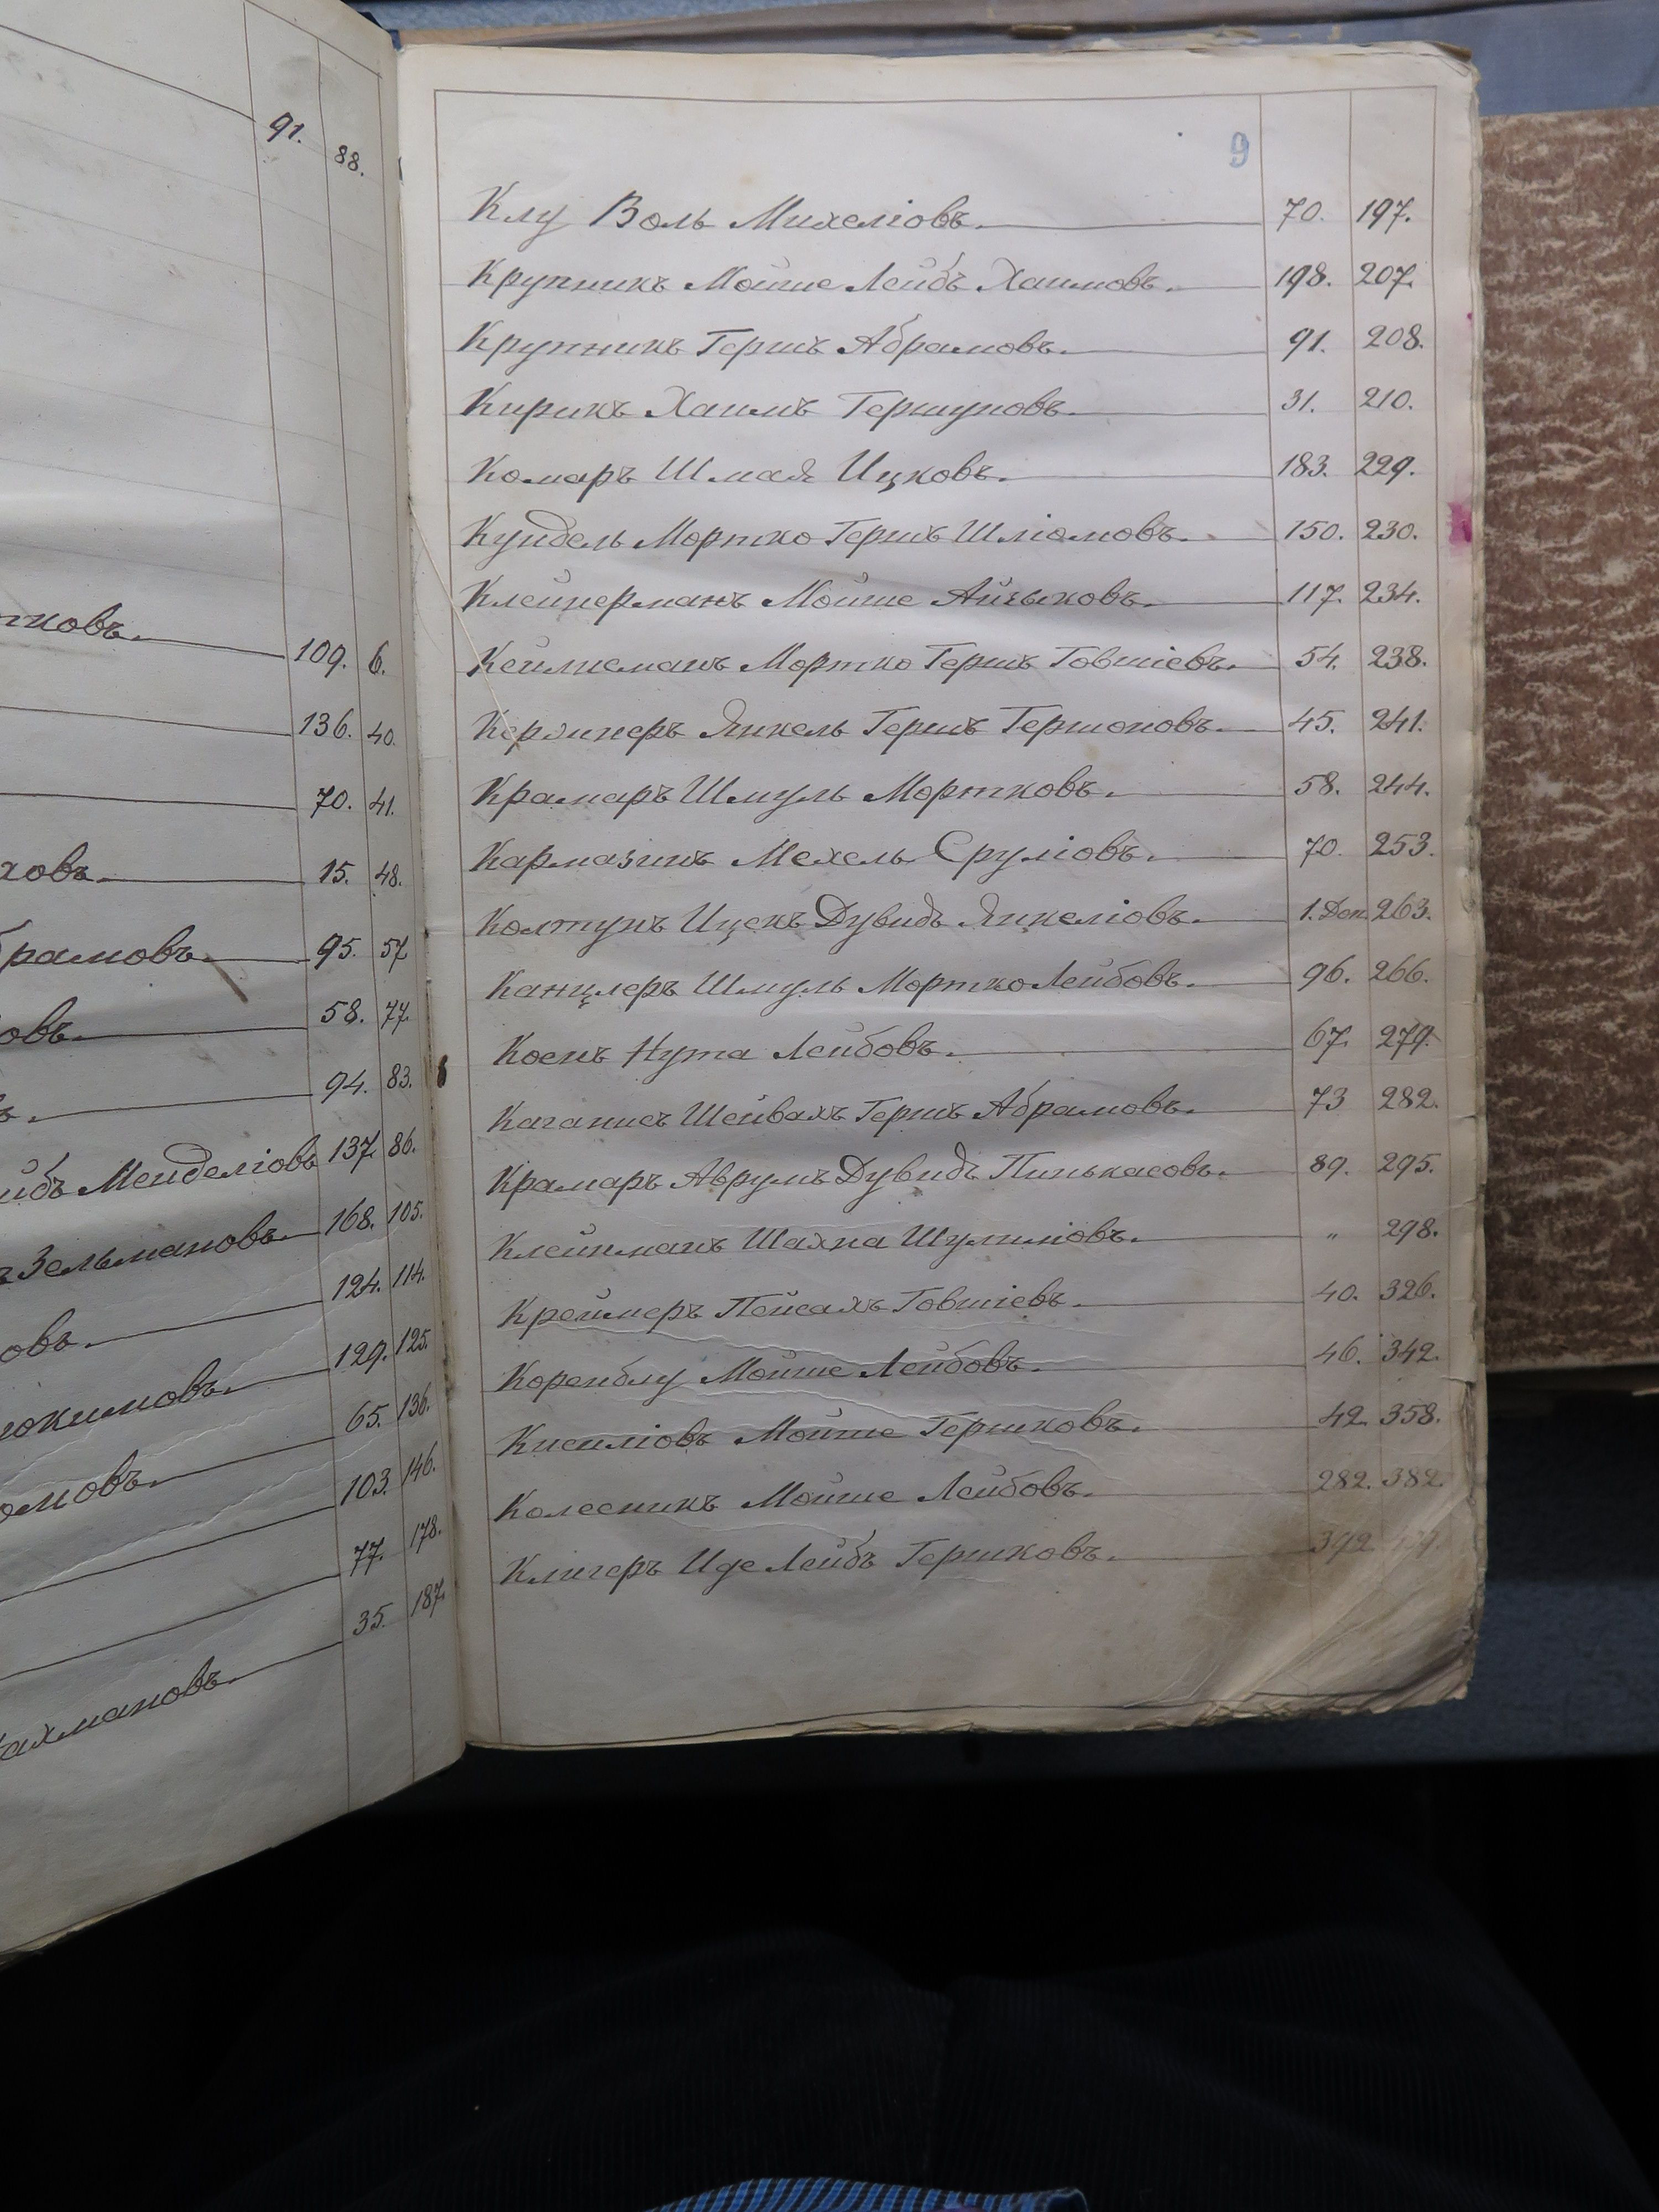 91. 88.
109. 6.
136. 40.
70. 41.
15. 48.
рамовъ 95. 57
овъ 58. 77.
94. 83.
Менделіовъ 137. 86.
Зельмановъ 168. 105.
овъ. 124. 114.
129. 125.
65. 136.
103. 146.
77. 178.
35. 187.
9
Клу Воль Михеліовъ. 70. 197.
Крупникъ Мойше Лейбъ Хаимовъ. 198. 207.
Крупникъ Гершъ Абрамовъ. 91. 208.
Кирикъ Хаимъ Гершуновъ. 31. 210.
Комаръ Шмая Ицковъ. 183. 229.
Кундель Мортко Гершъ Шліомовъ. 150. 230.
Клейнерманъ Мойше Айзыковъ. 117. 234.
Мортко Гершъ Товшіевъ. 54. 238.
Кержнеръ Янкель Гершъ Гершоновъ. 45. 241.
Крамаръ Шмуль Мортковъ. 58. 244.
Кармазинъ Мехель Сруліовъ. 70. 253.
Колтунъ Ицекъ Дувидъ Янкеліовъ. 1. Доп. 263.
Канцлеръ Шмуль Мортко Лейбовъ. 96. 266.
Коенъ Нута Лейбовъ. 67. 279.
Каганисъ Шейвахъ Гершъ Абрамовъ. 73 282.
Крамаръ Аврумъ Дувидъ Пинькасовъ. 89. 295.
Клейнманъ Шахна Шулиміовъ. „ 298.
Креймеръ Пейсахъ Товшіевъ. 40. 326.
Коренблу Мойше Лейбовъ. 46. 342.
Кисиліовъ Мойше Гершковъ. 42. 358.
Колесникъ Мойше Лейбовъ. 282. 382.
Клигеръ Иде Лейбъ Гершковъ. 392